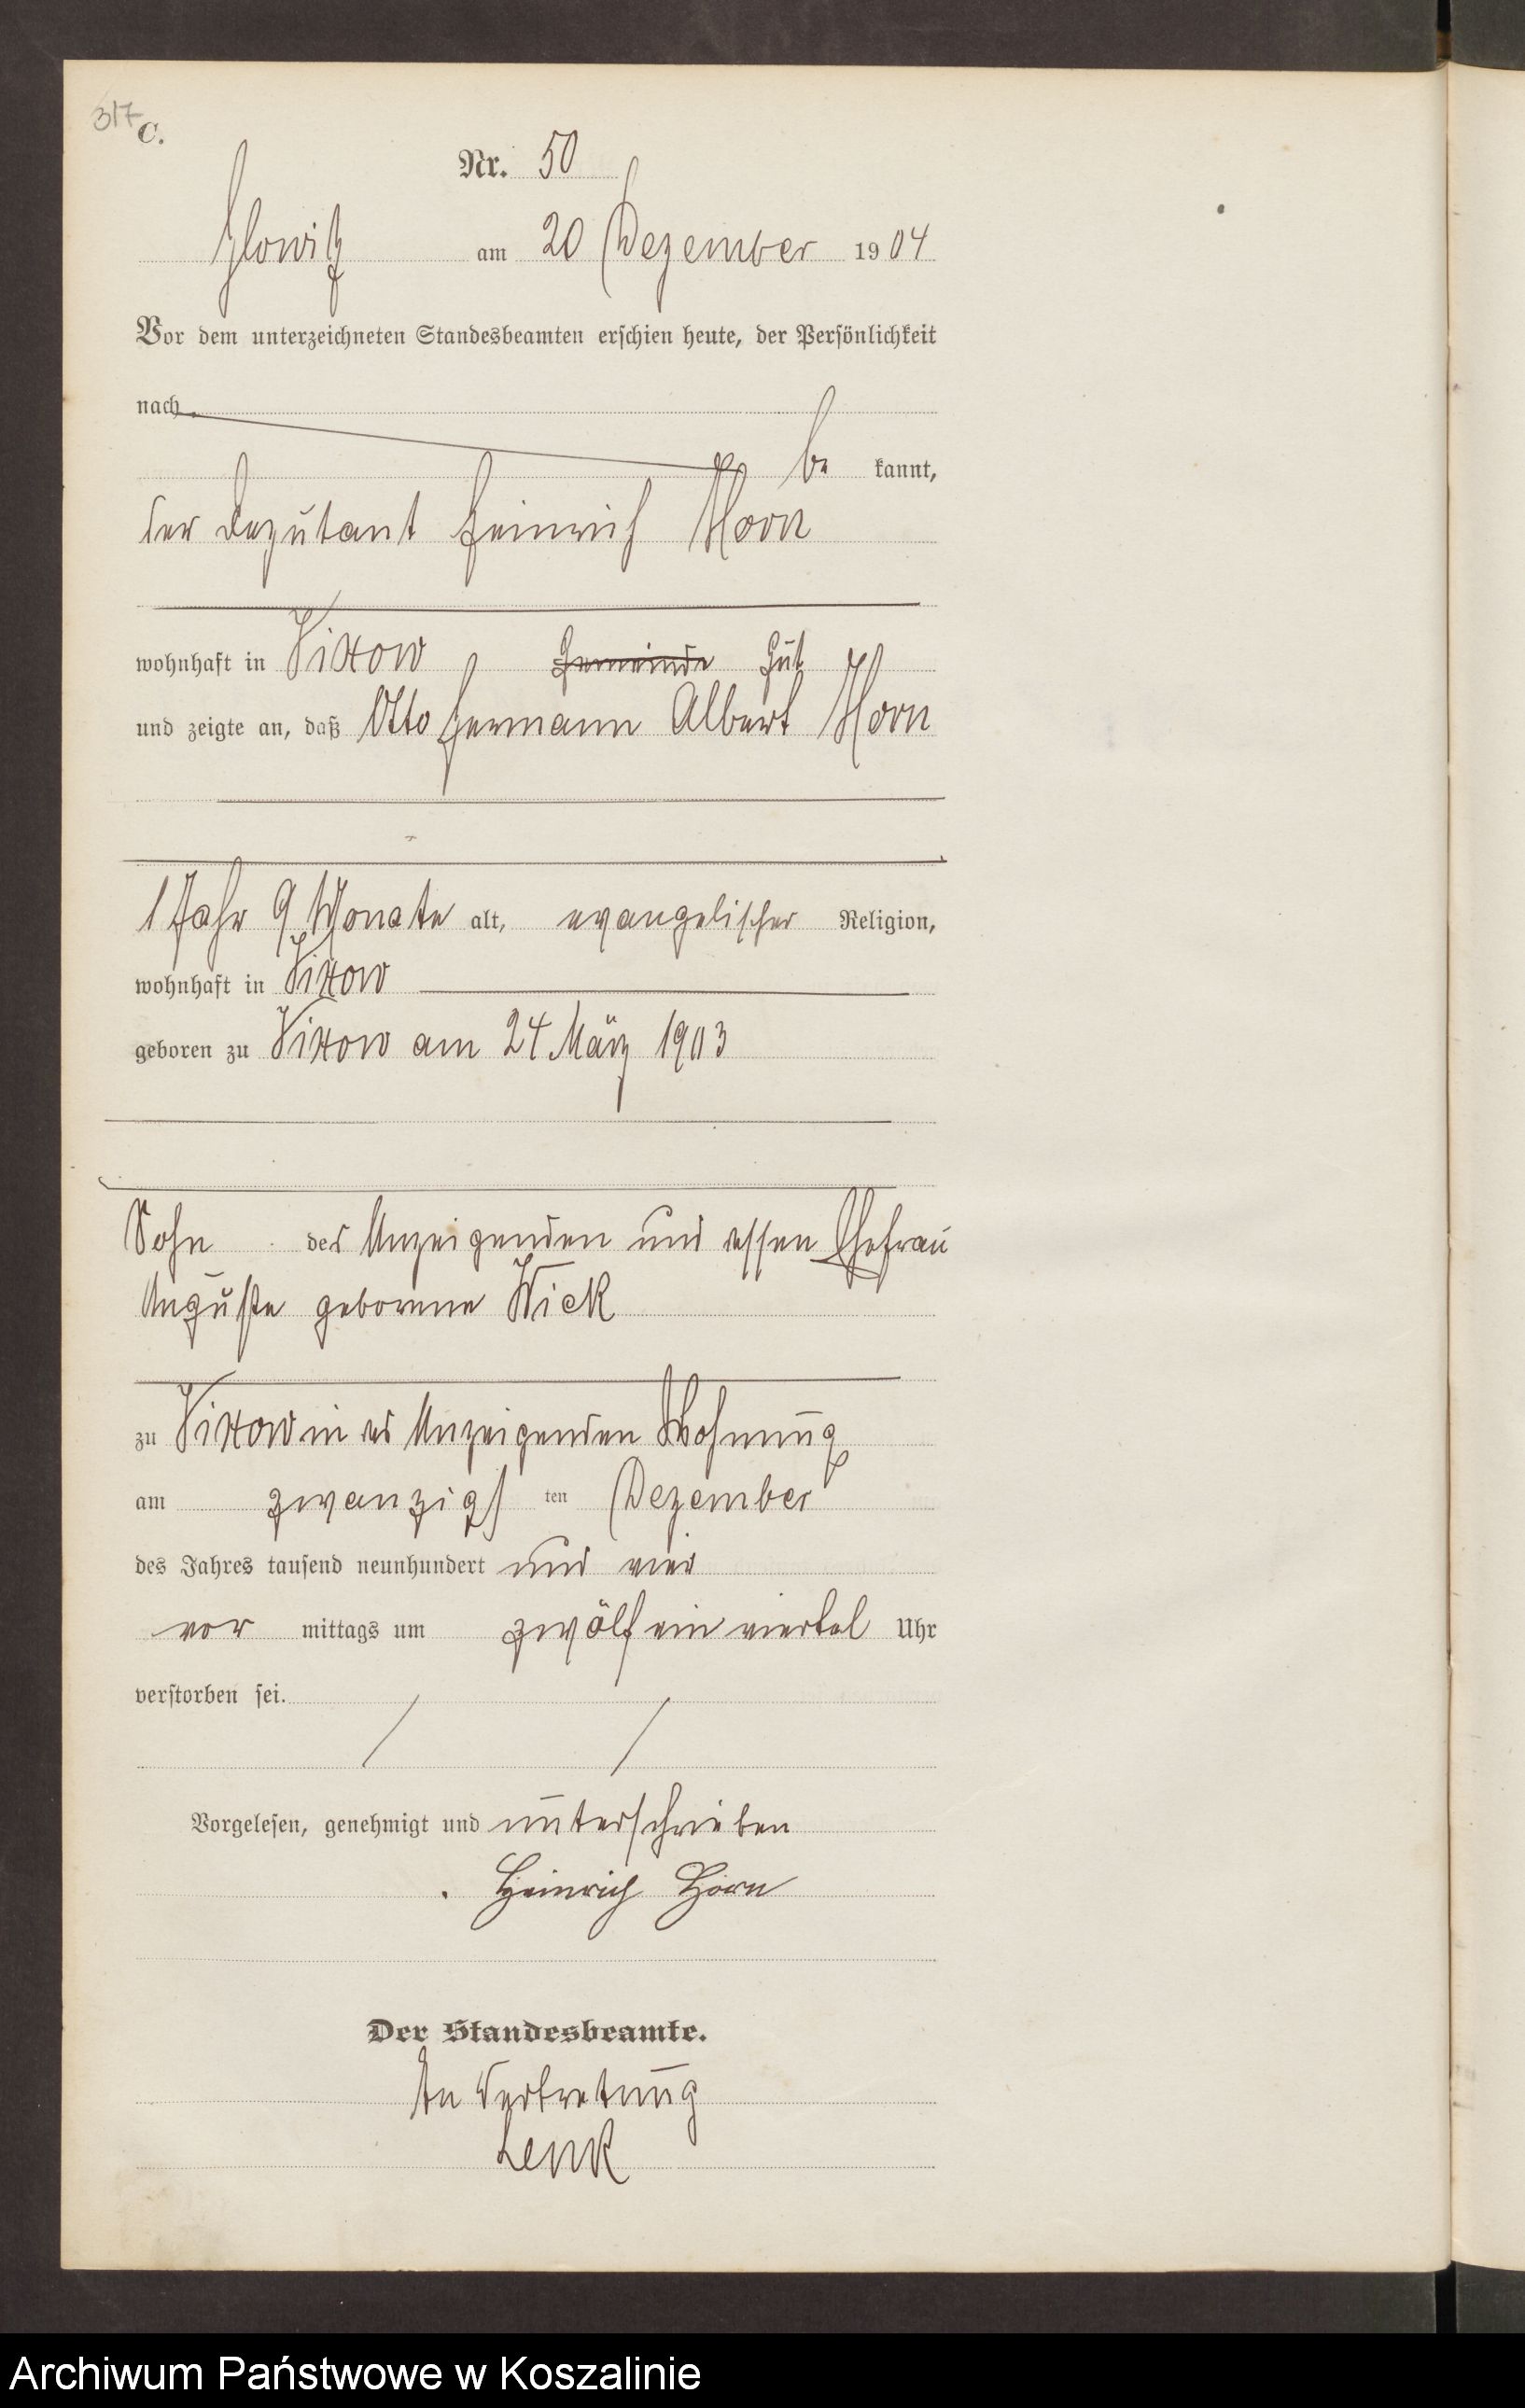 317
C.
Nr. 50
Glowitz am 20 Dezember 1904
Vor dem unterzeichneten Standesbeamten erschien heute, der Persönlichkeit
nach
be kannt,
der Deputant Heinrich Horn
wohnhaft in Vixow, Gemeinde Gut
und zeigte an, daß Otto Hermann Albert Horn
1 Jahr 9 Monate alt, evangelischer Religion,
wohnhaft in Vixow
geboren zu Vixow am 24 März 1903
Sohn des Anzeigenden und dessen Ehefrau
Auguste geborene Wick
zu Vixow in des Anzeigenden Wohnung
am zwanzigs ten Dezember
des Jahres tausend neunhundert und vier
vor mittags um zwölf ein viertel Uhr
verstorben sei.
Vorgelesen, genehmigt und unterschrieben
Heinrich Horn
Der Standesbeamte.
In Vertretung
Lenk
Archiwum Państwowe w Koszalinie